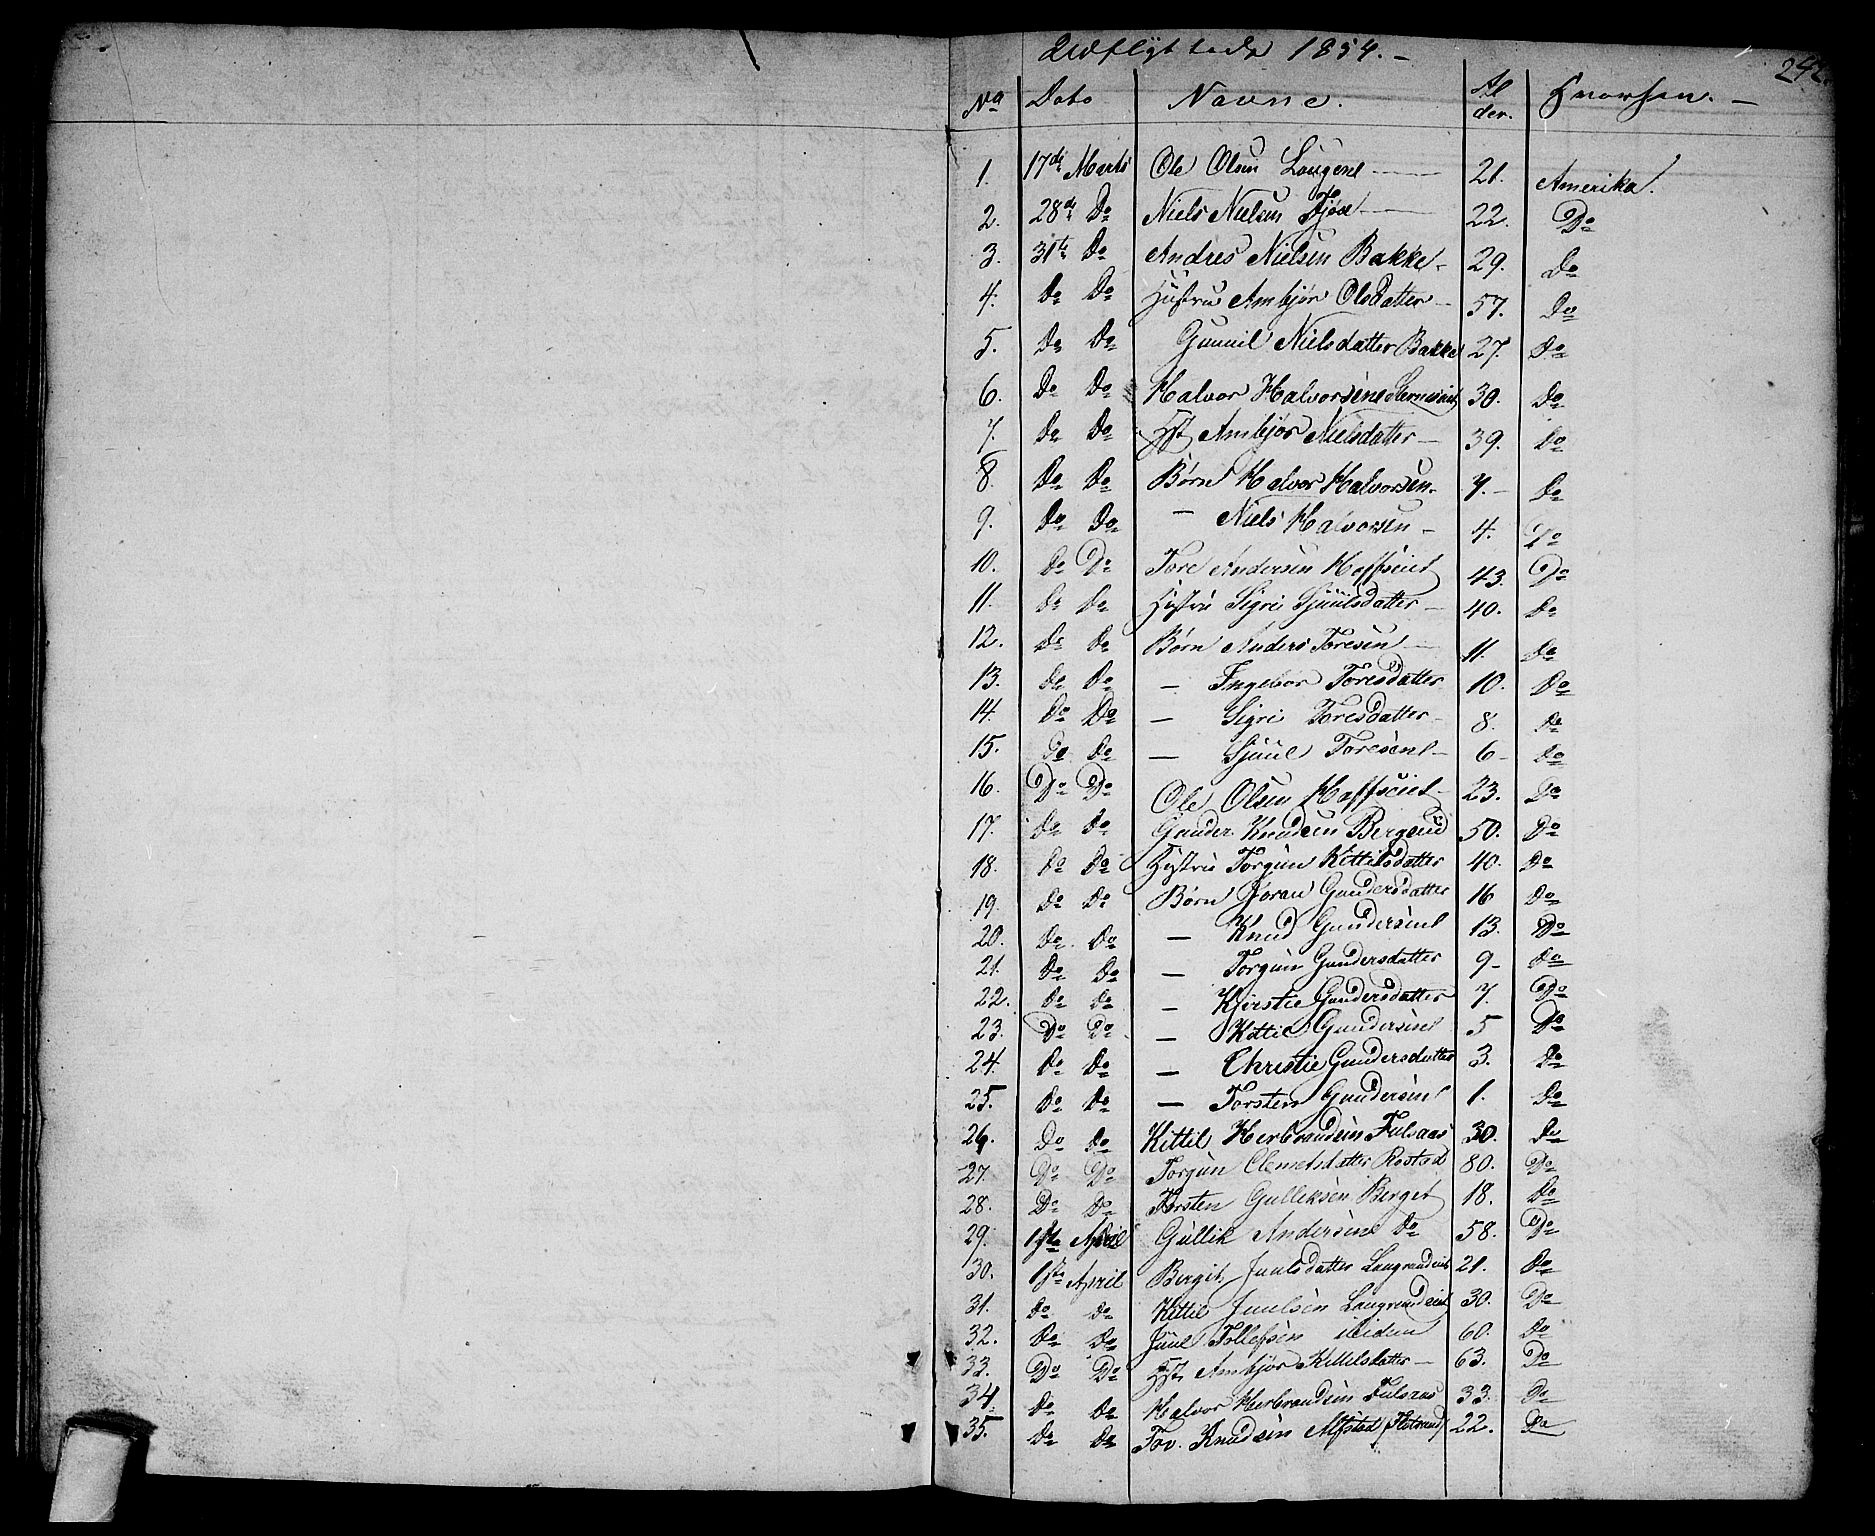 Udflyttede 1854. –
242.
No Dato Navne. Alder. Hvorhen. –
1. 17de Marts Ole Olsen Langesel 21. Amerika.
2. 28de Do Niels Nielsen 22. Do
3. 31te Do Andres Nielsen Bakke 29. Do
4. Do Do Hustru Ambjør Olsdatter 57. Do
5. Do Do Gunnil Nielsdatter Bakke 27. Do
6. Do Do Halvor Halvorsen 30. Do
7. Do Do Hst Ambjør Nielsdatter – 39. Do
8. Do Do Børn Halvor Halvorsen 7. – Do
9. Do Do – Niels Halvorsen – 4. Do
10. Do Do Tore Andersen Haffseiet 43. Do
11. Do Do Hustru Sigri Sjuulsdatter – 40. Do
12. Do Do Børn Anders Toresen 11. Do
13. Do Do – Ingebor Toresdatter 10. Do
14. Do Do – Sigri Toresdatter 8. Do
15. Do Do – Sjuul Toresen – 6 – Do
16. Do Do Ole Olsen Haffseiet 23. Do
17. Do Do Gunder Knudsen 50. Do
18. Do Do Hustru Torgun Kittilsdatter 40. Do
19. Do Do Børn Joran Gundersdatter 16 Do
20. Do Do – Knud Gundersen 13. Do
21. Do Do – Torgun Gundersdatter 9 – Do
22. Do Do – Kjerstie Gundersdatter 7. Do
23. Do Do – Kittil Gundersen 5 Do
24. Do Do – Christie Gundersdatter 3. Do
25. Do Do – Torsten Gundersen 1. Do
26. Do Do Kittil Herbrandsen Fulsaas 30. Do
27. Do Do Torgun Clemetsdatter Rostad 80. Do
28. Do Do Torsten Gulleksen Berget 18. Do
29. 1ste April Gullik Andersen Do 58. Do
30. 1ste April Bergit Juulsdatter Langrandeiet 21. Do
31. Do Do Kittil Juulsen Langrandeiet 30. Do
32. Do Do Juul Tollefsen ibidem 60. Do
33. Do Do Hst Ambjør Kittilsdatter – 63. Do
34 Do Do Halvor Herbrandsen Fulsaas 33. Do
35. Do Do Tov. Knudsen Alfstad 22. Do